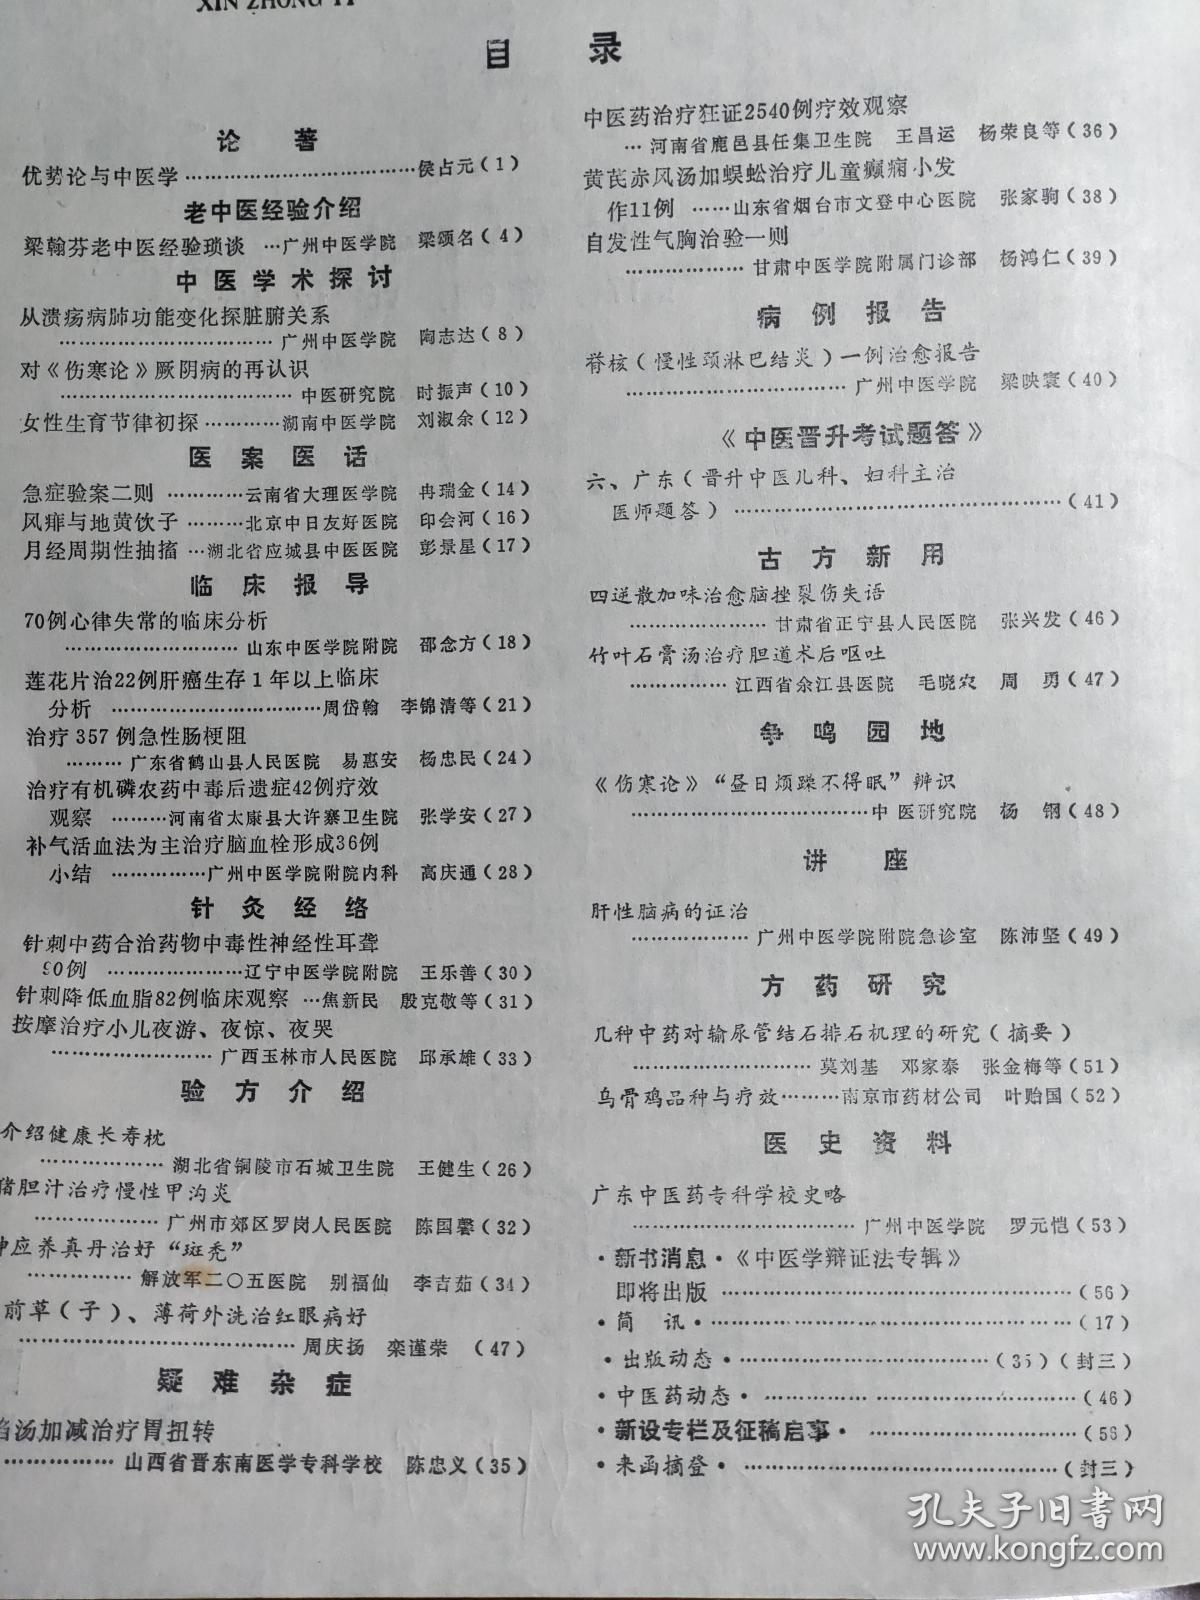 XIN ZHONG YI
目 录
论 著
优势论与中医学 ……………………………侯占元(1)
老中医经验介绍
梁翰芬老中医经验琐谈 …广州中医学院 梁颂名(4)
中医学术探讨
从溃疡病肺功能变化探脏腑关系
……………………………广州中医学院 陶志达(8)
对《伤寒论》厥阴病的再认识
………………………………中医研究院 时振声(10)
女性生育节律初探…………湖南中医学院 刘淑余(12)
医案医话
急症验案二则 …………云南省大理医学院 冉瑞金(14)
风痱与地黄饮子………北京中日友好医院 印会河(16)
月经周期性抽搐 …湖北省应城县中医医院 彭景星(17)
临床报导
70例心律失常的临床分析
………………………山东中医学院附院 邵念方(18)
莲花片治22例肝癌生存1年以上临床
分析 ……………………………周岱翰 李锦清等(21)
治疗357例急性肠梗阻
………广东省鹤山县人民医院 易惠安 杨忠民(24)
治疗有机磷农药中毒后遗症42例疗效
观察 ………河南省太康县大许寨卫生院 张学安(27)
补气活血法为主治疗脑血栓形成36例
小结 ……………广州中医学院附院内科 高庆通(28)
针灸经络
针刺中药合治药物中毒性神经性耳聋
90例 …………………辽宁中医学院附院 王乐善(30)
针刺降低血脂82例临床观察 …焦新民 殷克敬等(31)
按摩治疗小儿夜游、夜惊、夜哭
……………………广西玉林市人民医院 邱承雄(33)
验方介绍
介绍健康长寿枕
………………湖北省铜陵市石城卫生院 王健生(26)
猪胆汁治疗慢性甲沟炎
………………广州市郊区罗岗人民医院 陈国馨(32)
神应养真丹治好“斑秃”
……………解放军二〇五医院 别福仙 李吉茹(34)
前草(子)、薄荷外洗治红眼病好
……………………………………周庆扬 栾谨荣 (47)
疑难杂症
汤加减治疗胃扭转
……………山西省晋东南医学专科学校 陈忠义(35)
中医药治疗狂证2540例疗效观察
…河南省鹿邑县任集卫生院 王昌运 杨荣良等(36)
黄芪赤风汤加蜈蚣治疗儿童癫痫小发
作11例 ……山东省烟台市文登中心医院 张家驹(38)
自发性气胸治验一则
………………甘肃中医学院附属门诊部 杨鸿仁(39)
病例报告
脊核(慢性颈淋巴结炎)一例治愈报告
……………………………广州中医学院 梁映寰(40)
《中医晋升考试题答》
六、广东(晋升中医儿科、妇科主治
医师题答)…………………………………………(41)
古方新用
四逆散加味治愈脑挫裂伤失语
…………………甘肃省正宁县人民医院 张兴发(46)
竹叶石膏汤治疗胆道术后呕吐
……………江西省余江县医院 毛晓农 周 勇(47)
争鸣园地
《伤寒论》“昼日烦躁不得眠”辨识
………………………………中医研究院 杨 钢(48)
讲 座
肝性脑病的证治
………………广州中医学院附院急诊室 陈沛坚(49)
方药研究
几种中药对输尿管结石排石机理的研究(摘要)
………………………莫刘基 邓家泰 张金梅等(51)
乌骨鸡品种与疗效………南京市药材公司 叶贻国(52)
医史资料
广东中医药专科学校史略
……………………………广州中医学院 罗元恺(53)
·新书消息·《中医学辩证法专辑》
即将出版 ……………………………………………(56)
·简 讯·……………………………………………(17)
·出版动态·………………………………(35)(封三)
·中医药动态· ………………………………………(46)
·新设专栏及征稿启事· …………………………(56)
·来函摘登· ………………………………………(封三)
孔夫子旧书网
www.kongfz.com